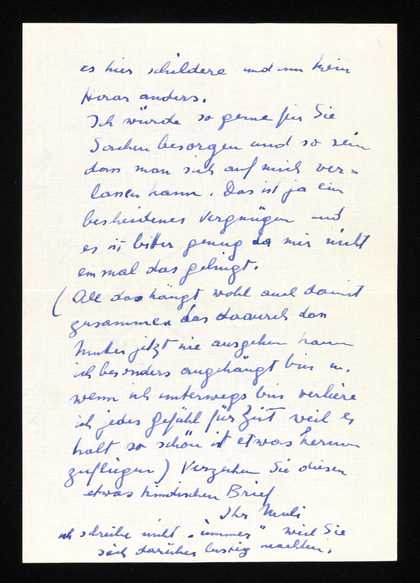 es hier schildere und um kein
Haar anders.
Ich würde so gerne für Sie
Sachen besorgen und so sein
dass man sich auf mich ver-
lassen kann. Das ist ja ein
bescheidenes Vergnügen und
es ist bitter genug da mir nicht
einmal das gelingt.
(All das hängt wohl auch damit
zusammen das dadurch das
Mutter jetzt nie ausgehen kann
ich besonders angehängt bin u.
wenn ich unterwegs bin verliere
ich jedes Gefühl für Zeit weil es
halt so schön ist etwas herum
zufliegen) Verzeihen Sie diesen
etwas kindischen Brief
Ihr Muli
ich schreibe nicht "immer" weil Sie
sich darüber lustig machten.